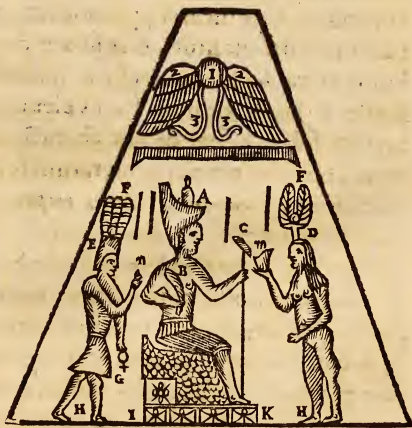 2 1 2
3 3
F A F
E D
C m
n B
G
H I K H